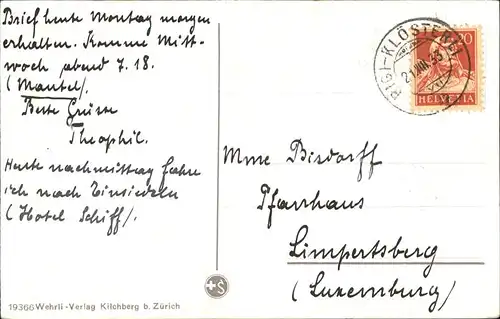 Brief heute Montag morgen
erhalten. Komme Mitt-
woch abend 7.18.
(Mantel).
Beste Grüsse
Theophil.
Heute nachmittag fahre
ich nach Einsiedeln
(Hotel Schiff).
RIGI-KLÖSTERLI
21.VIII.33
20
HELVETIA
Mme Bisdorff
Pfarrhaus
Limpertsberg
(Luxemburg)
+S
19366 Wehrli-Verlag Kilchberg b. Zürich